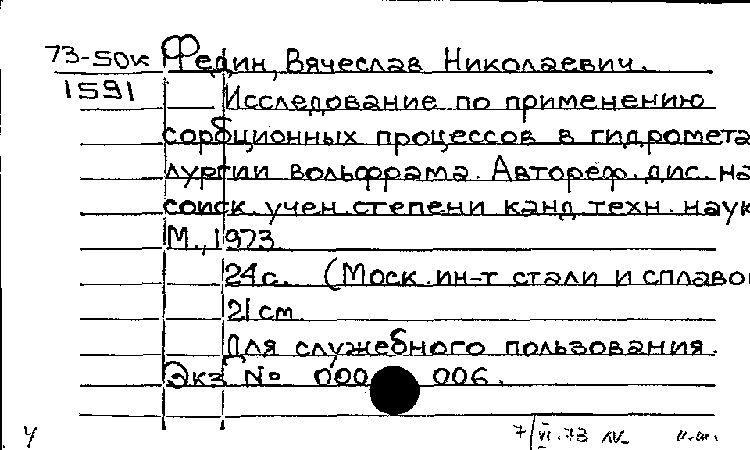 73-50к Федин, Вячеслав Николаевич.
1591 Исследование по применению
сорбционных процессов в гидромета
лургии вольфрама. Автореф. дис. на
соиск. учен. степени канд. техн. наук
М., 1973.
24 с. (Моск. ин-т стали и сплавов
21 см.
Для служебного пользования.
Экз № 000 006.
7/VI-73